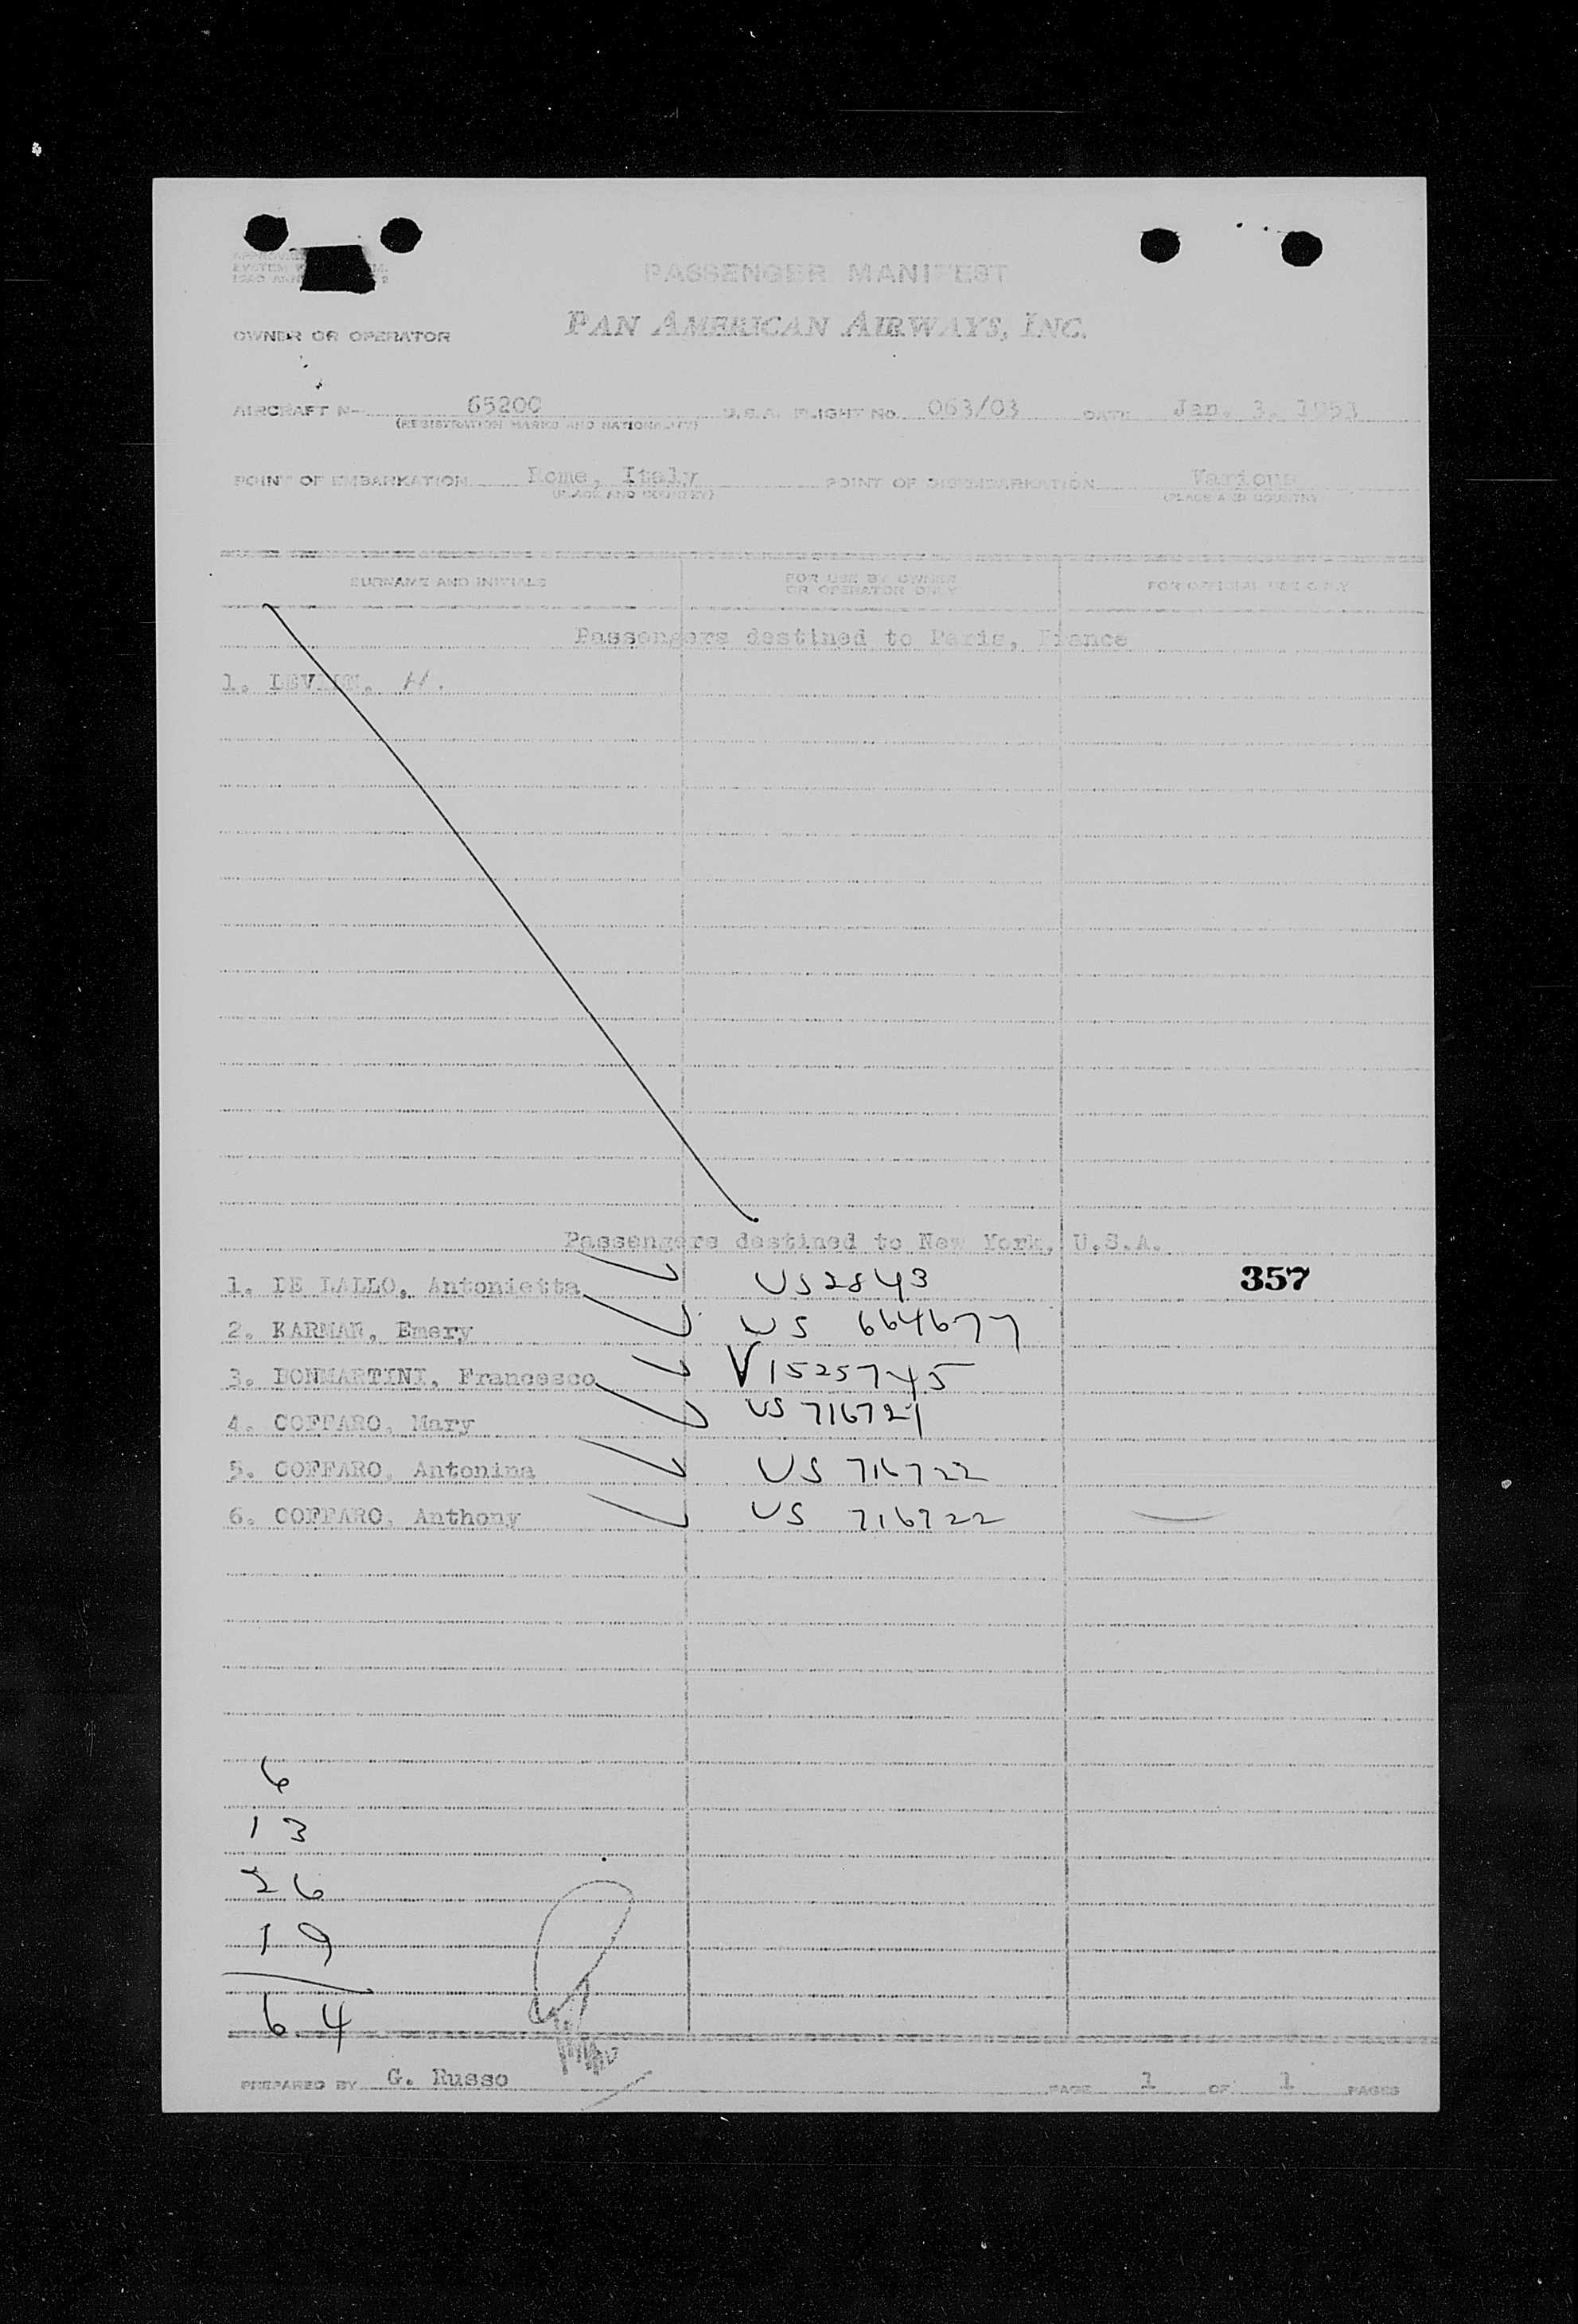 PASSENGER MANIFEST
OWNER OR OPERATOR PAN AMERICAN AIRWAYS, INC.
AIRCRAFT N- 65200 U.S.A. FLIGHT No. 063/03 DATE Jan. 3, 1953
(REGISTRATION MARKS AND NATIONALITY)
POINT OF EMBARKATION Rome, Italy POINT OF DISEMBARKATION Various
(PLACE AND COUNTRY) (PLACE AND COUNTRY)
SURNAME AND INITIALS FOR USE BY OWNER OR OPERATOR ONLY FOR OFFICIAL USE ONLY
Passengers destined to Paris, France
1. H.
Passengers destined to New York, U.S.A.
1. DE LALLO, Antonietta US 2843 357
2. KARMAN, Emery US 664677
3. BONMARTINI, Francesco V1525745
4. COFFARO, Mary US 716721
5. COFFARO, Antonina US 716722
6. COFFARO, Anthony US 716722
6
13
26
19
64
PREPARED BY G. Russo PAGE 1 OF 1 PAGES